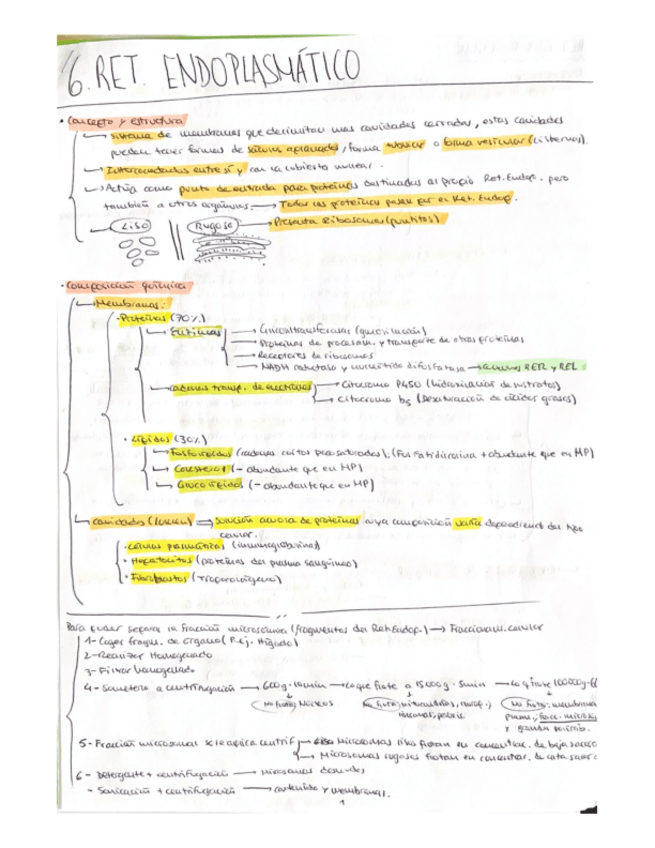 6. RET. ENDOPLASMÁTICO
• Concepto y estructura
→ sistema de membranas que delimitan unas cavidades cerradas, estas cavidades
pueden tener formas de sáculos aplanados, forma tubular o forma vesicular (cisternas).
→ Interconectados entre sí y con la cubierta nuclear.
→ Actúa como punto de entrada para proteínas destinadas al propio Ret. Endop. pero
también a otros orgánulos. → Todas las proteínas pasan por el Ret. Endop.
→ Liso || Rugoso → Presenta Ribosomas (puntitos)
• Composición química
→ Membranas:
• Proteínas (70%)
→ Enzimas → Glicosiltransferasas (glucosilación)
→ Proteínas de procesam. y transporte de otras proteínas
→ Receptores de ribosomas
→ NADH reductasa y nucleótido difosfatasa → RER y REL
→ cadenas transp. de electrones → Citocromo P450 (hidroxilación de sustratos)
→ Citocromo b5 (Desaturación de ácidos grasos)
• Lípidos (30%)
→ Fosfolípidos (cadenas cortas poco saturadas), (Fosfatidilcolina + abundante que en MP)
→ Colesterol (- abundante que en MP)
→ Glucolípidos (- abundante que en MP)
→ cavidades (lumen) ⇒ solución acuosa de proteínas cuya composición varía dependiendo del tipo
celular.
• Células plasmáticas (inmunoglobulinas)
• Hepatocitos (proteínas del plasma sanguíneo)
• Fibroblastos (tropocolágeno)
Para poder separar la fracción microsómica (fragmentos del Ret. Endop.) → Fraccionam. celular
1- Coger fragm. de órgano (P.ej. Hígado)
2- Realizar Homogenado
3- Filtrar homogenado
4- Someterlo a centrifugación → 600g · 10min → lo que flote a 15000g · 5min → lo q flote 100000g
No flota: Núcleos
No flota: mitocondrias,
lisosomas,
No flota: membrana
plasm., fracc. micros
5- Fracción microsomal se le aplica centrif → Microsomas lisos flotan en concentrac. de baja
→ Microsomas rugosos flotan en concentrac. de alta
6- Detergente + centrifugación → Microsomas
- Sonicación + centrifugación → contenido y membranas.
1